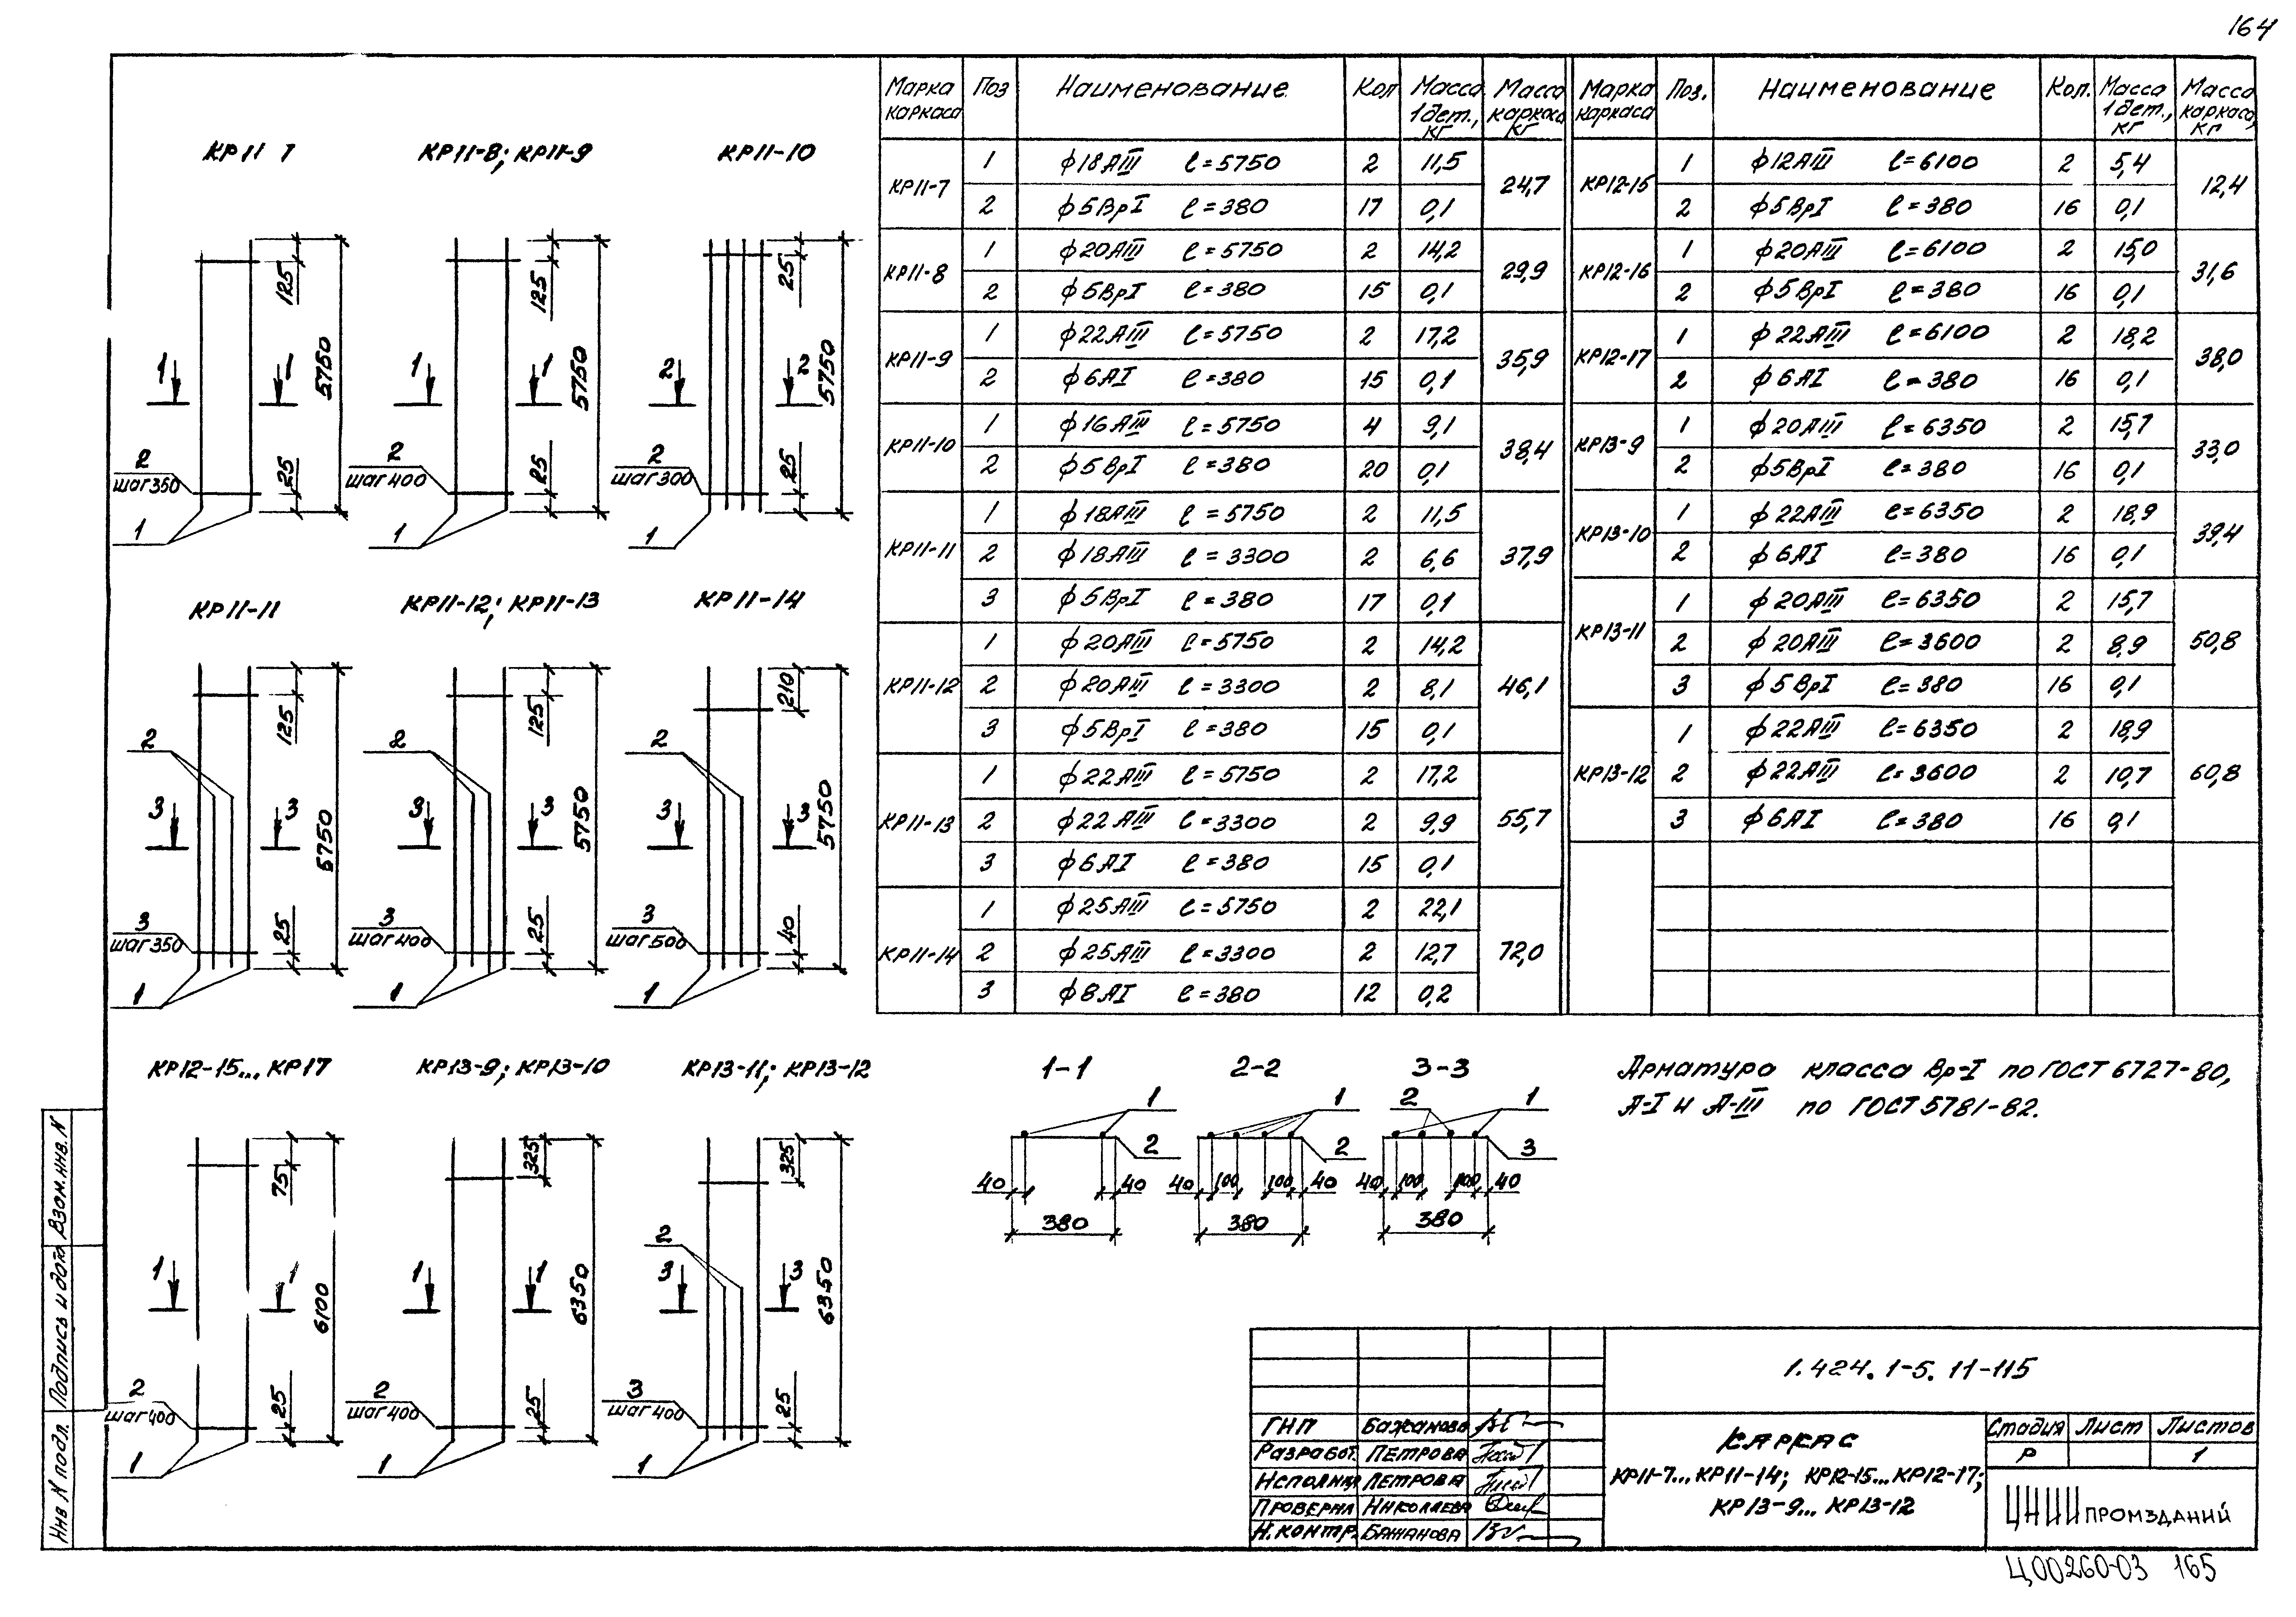 164
КР11 7
КР11-8; КР11-9
КР11-10
125
5750
1 1
2
шаг 350
25
1
125
5750
1 1
2
шаг 400
25
1
25
5750
2 2
2
шаг 300
25
1
КР11-11
КР11-12; КР11-13
КР11-14
125
2
3 3
5750
3
шаг 350
25
1
125
2
3 3
5750
3
шаг 400
25
1
210
2
3 3
5750
3
шаг 500
40
1
КР12-15... КР17
КР13-9; КР13-10
КР13-11; КР13-12
75
1 1
6100
2
шаг 400
25
1
325
1 1
6350
2
шаг 400
25
1
325
2
3 3
6350
3
шаг 400
25
1
Марка каркаса Поз Наименование Кол Масса 1 дет., кг Масса каркаса кг
КР11-7 1 ф18АIII ℓ=5750 2 11,5 24,7
2 ф5ВрI ℓ=380 17 0,1
КР11-8 1 ф20АIII ℓ=5750 2 14,2 29,9
2 ф5ВрI ℓ=380 15 0,1
КР11-9 1 ф22АIII ℓ=5750 2 17,2 35,9
2 ф6АI ℓ=380 15 0,1
КР11-10 1 ф16АIII ℓ=5750 4 9,1 38,4
2 ф5ВрI ℓ=380 20 0,1
КР11-11 1 ф18АIII ℓ=5750 2 11,5 37,9
2 ф18АIII ℓ=3300 2 6,6
3 ф5ВрI ℓ=380 17 0,1
КР11-12 1 ф20АIII ℓ=5750 2 14,2 46,1
2 ф20АIII ℓ=3300 2 8,1
3 ф5ВрI ℓ=380 15 0,1
КР11-13 1 ф22АIII ℓ=5750 2 17,2 55,7
2 ф22АIII ℓ=3300 2 9,9
3 ф6АI ℓ=380 15 0,1
КР11-14 1 ф25АIII ℓ=5750 2 22,1 72,0
2 ф25АIII ℓ=3300 2 12,7
3 ф8АI ℓ=380 12 0,2
Марка каркаса Поз. Наименование Кол. Масса 1 дет., кг Масса каркаса, кг
КР12-15 1 ф12АIII ℓ=6100 2 5,4 12,4
2 ф5ВрI ℓ=380 16 0,1
КР12-16 1 ф20АIII ℓ=6100 2 15,0 31,6
2 ф5ВрI ℓ=380 16 0,1
КР12-17 1 ф22АIII ℓ=6100 2 18,2 38,0
2 ф6АI ℓ=380 16 0,1
КР13-9 1 ф20АIII ℓ=6350 2 15,7 33,0
2 ф5ВрI ℓ=380 16 0,1
КР13-10 1 ф22АIII ℓ=6350 2 18,9 39,4
2 ф6АI ℓ=380 16 0,1
КР13-11 1 ф20АIII ℓ=6350 2 15,7 50,8
2 ф20АIII ℓ=3600 2 8,9
3 ф5ВрI ℓ=380 16 0,1
КР13-12 1 ф22АIII ℓ=6350 2 18,9 60,8
2 ф22АIII ℓ=3600 2 10,7
3 ф6АI ℓ=380 16 0,1
1-1
1
2
40 40
380
2-2
1
2
40 100 100 40
380
3-3
2 1
3
40 100 100 40
380
Арматура класса Вр-I по ГОСТ 6727-80,
А-I и А-III по ГОСТ 5781-82.
1.424.1-5.11-115
ГНП Бажанова
Разработ. Петрова
Исполнил Петрова
Проверил Николаева
Н.контр. Бажанова
Каркас
КР11-7...КР11-14; КР12-15...КР12-17;
КР13-9... КР13-12
Стадия Лист Листов
Р 1
ЦНИИПРОМЗДАНИЙ
Инв № подл. Подпись и дата Взам.инв.№
Ц00260-03 165